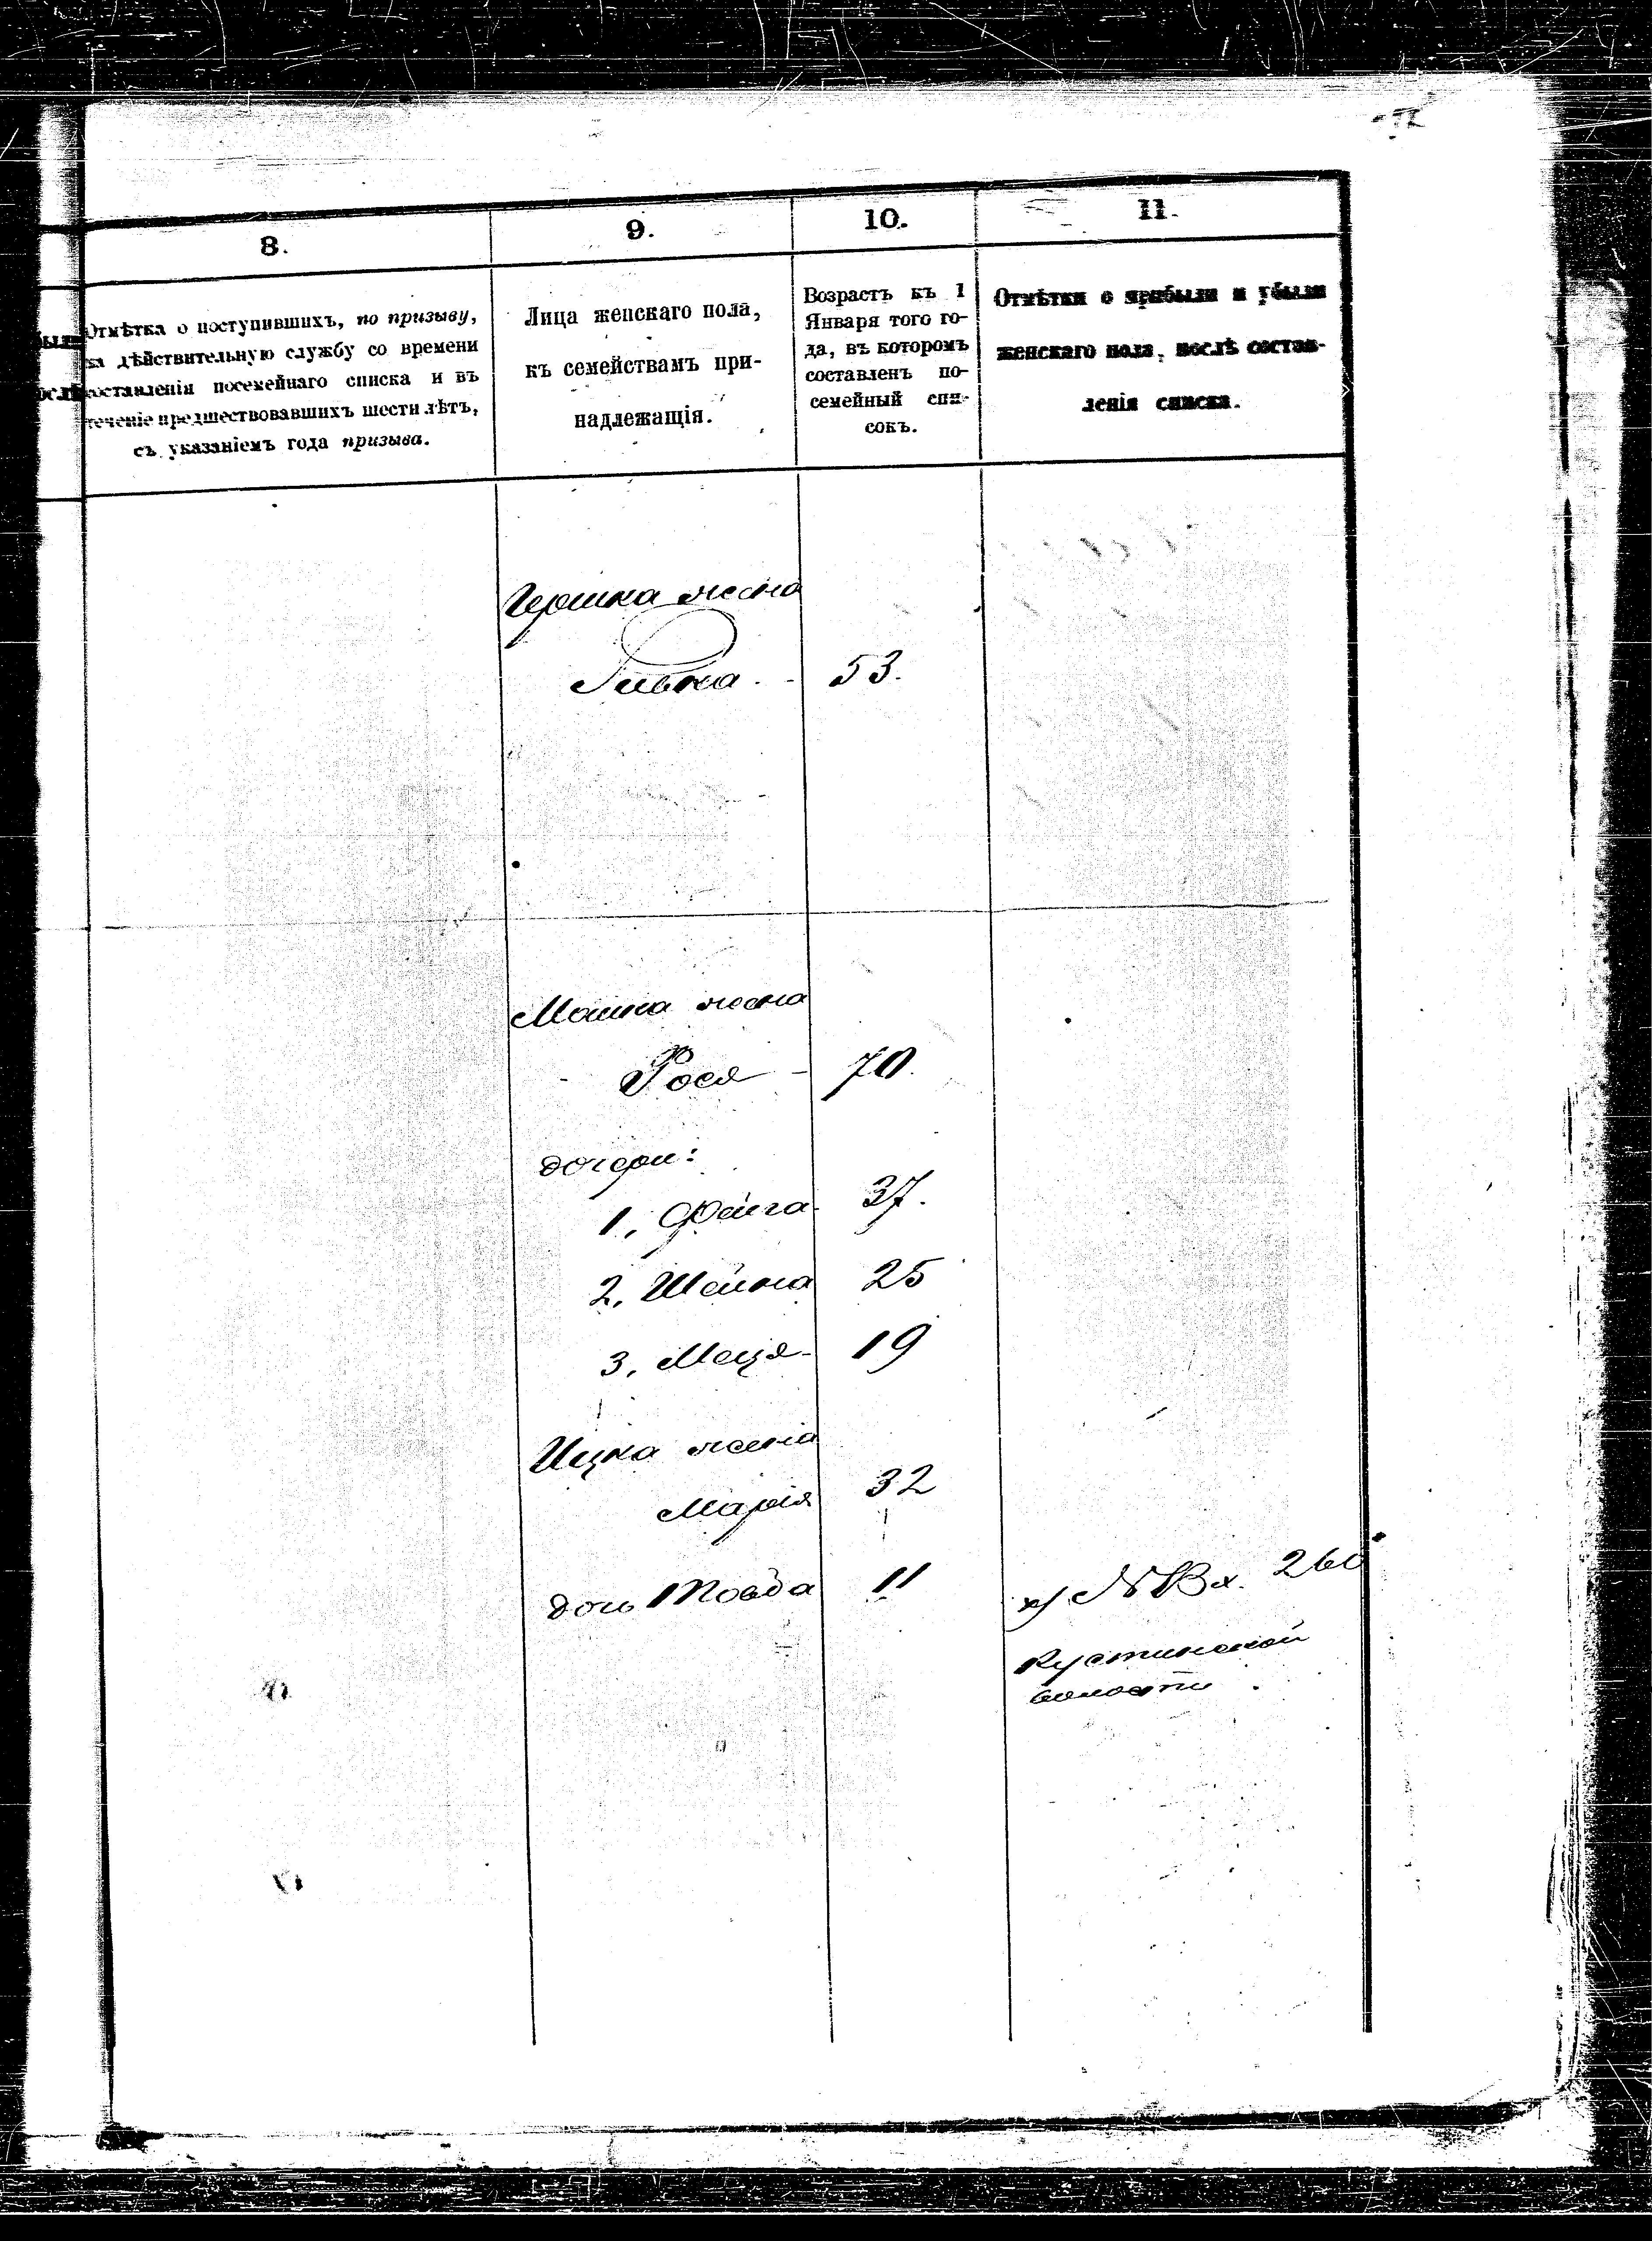 8.
9.
10.
11.
Отмѣтка о поступившихъ, по призыву,
на дѣйствительную службу со времени
составленія посемейнаго списка и въ
теченіе предшествовавшихъ шести лѣтъ,
съ указаніемъ года призыва.
Лица женскаго пола,
къ семействамъ при-
надлежащія.
Возрастъ къ 1
Января того го-
да, въ которомъ
составленъ по-
семейный спи-
сокъ.
Отмѣтки о прибыли и убыли
женскаго пола, послѣ состав-
ленія списка.
Гершка жена
53.
Мошка жена
Рося - 70.
дочери:
1, Фейга 37.
2, Шейна 25
3, 19
Ицка жена
Марія 32
дочь 11
260
Кустинской
волости